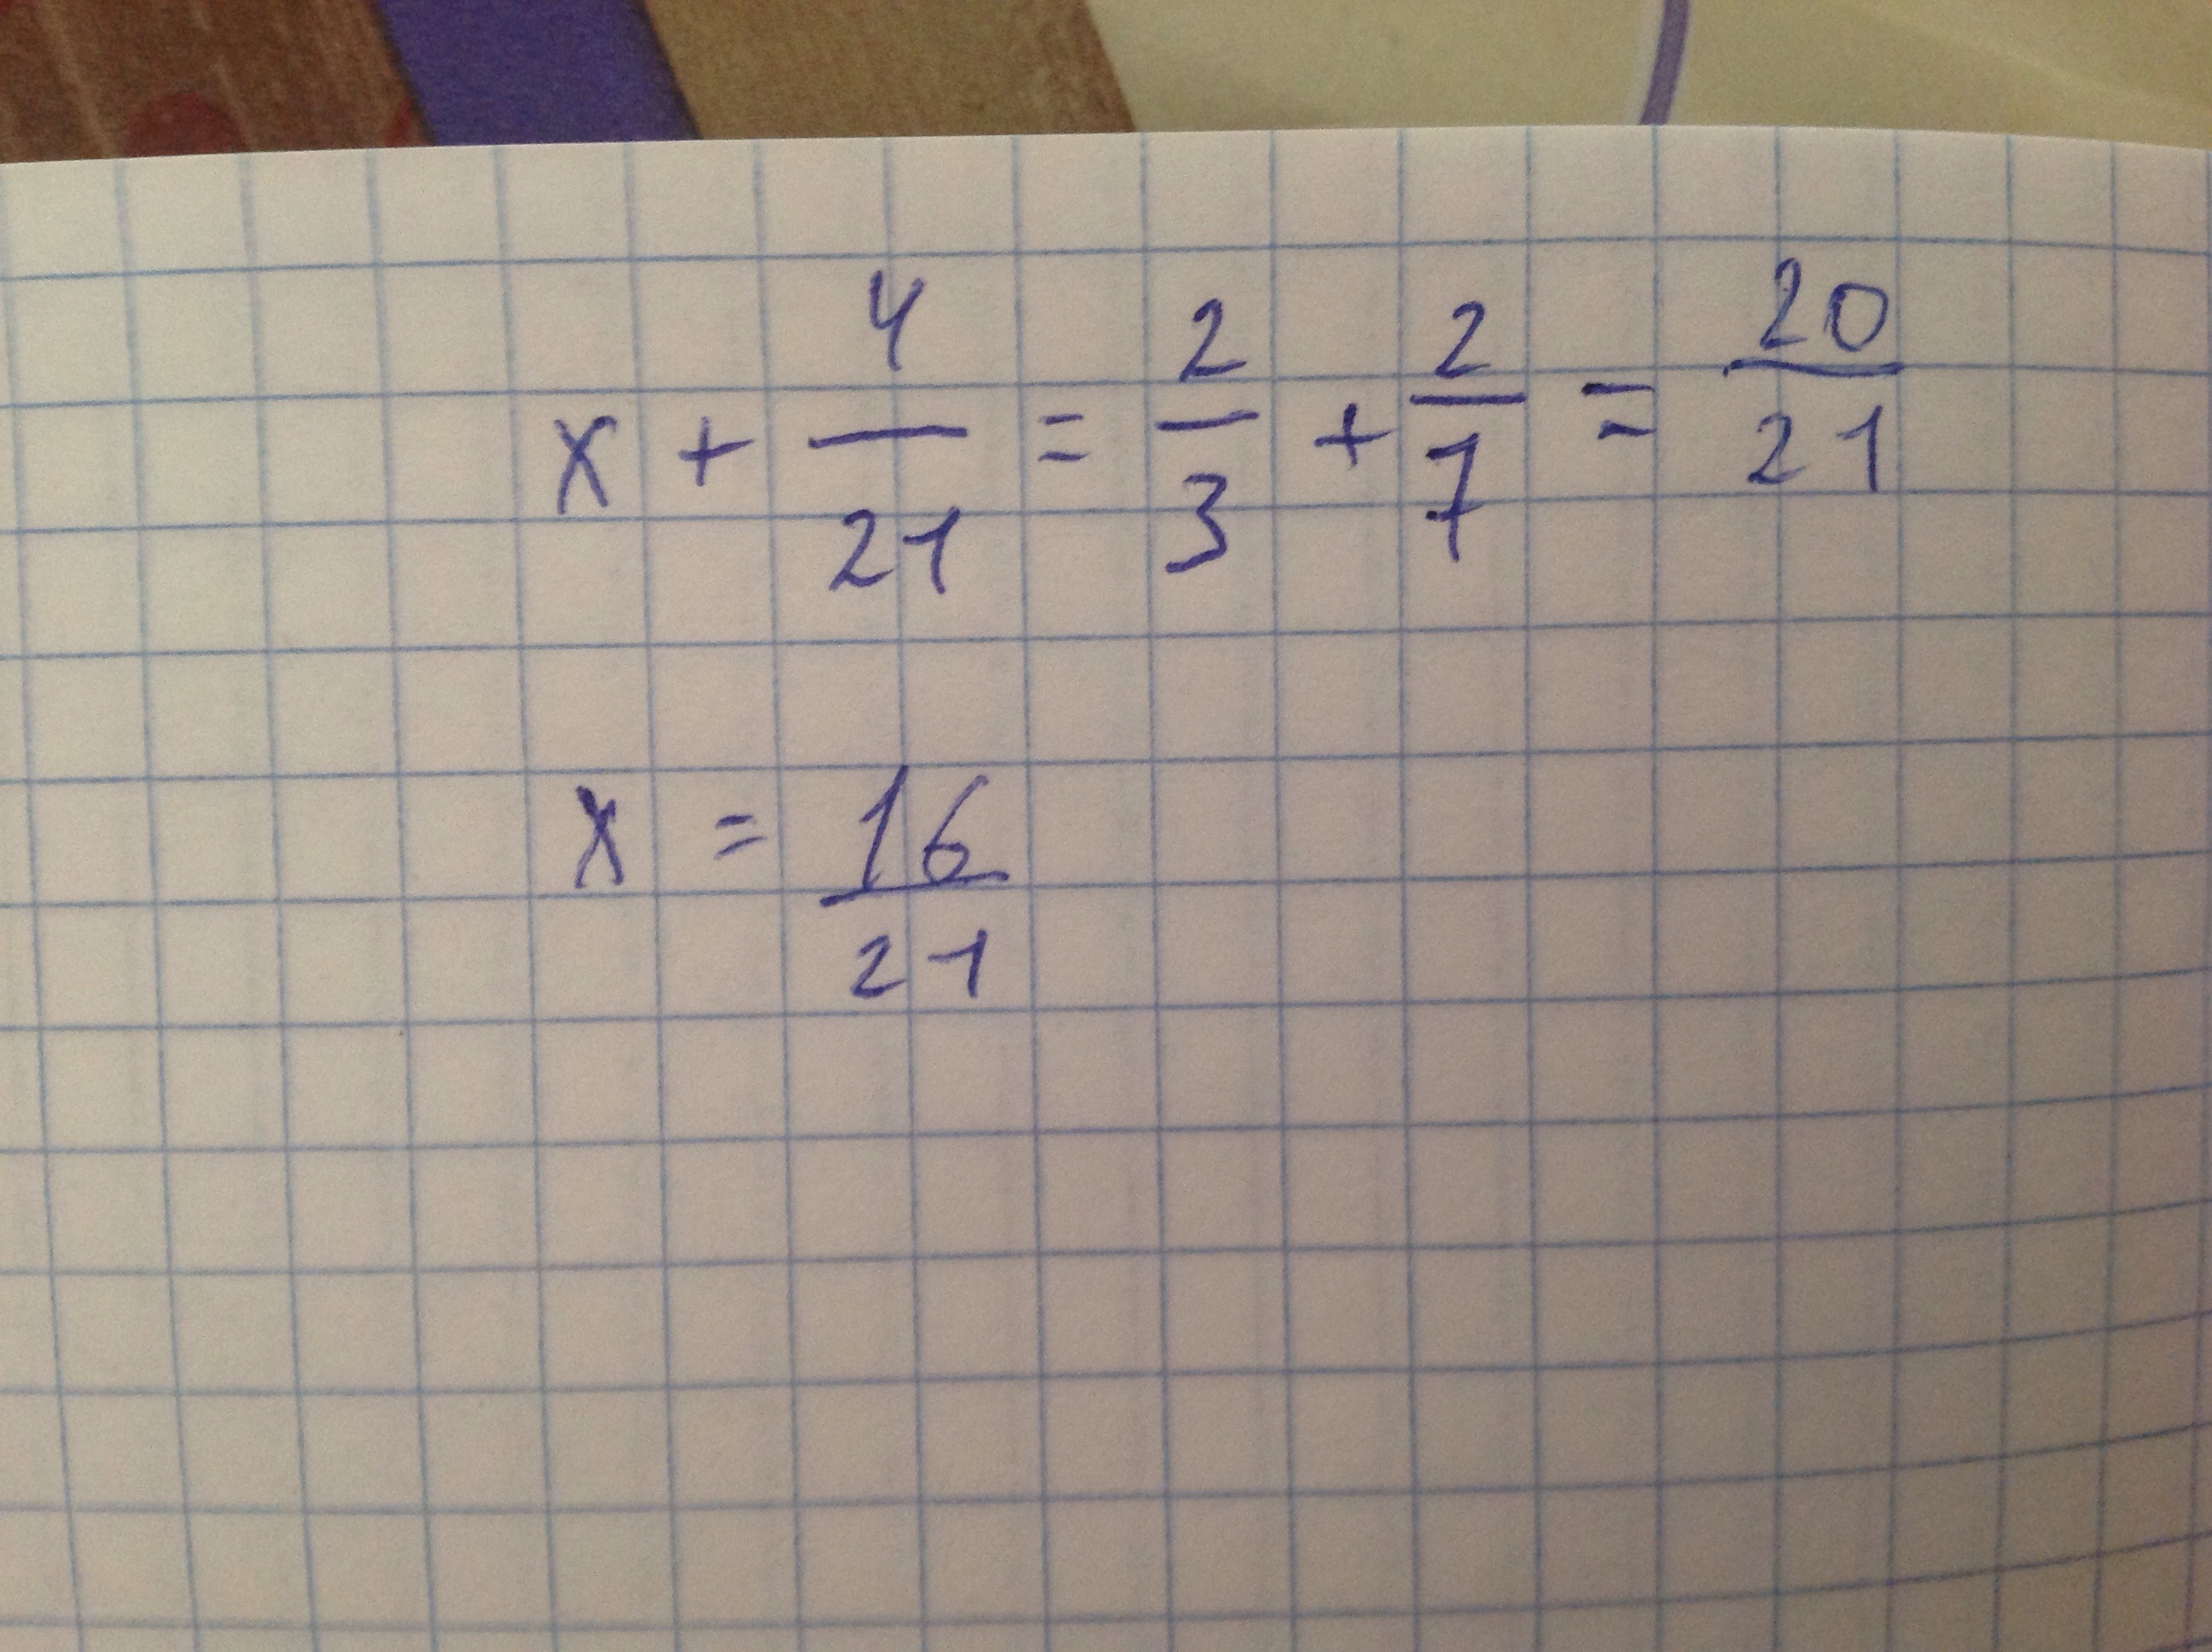 x + 4/21 = 2/3 + 2/7 = 20/21
x = 16/21